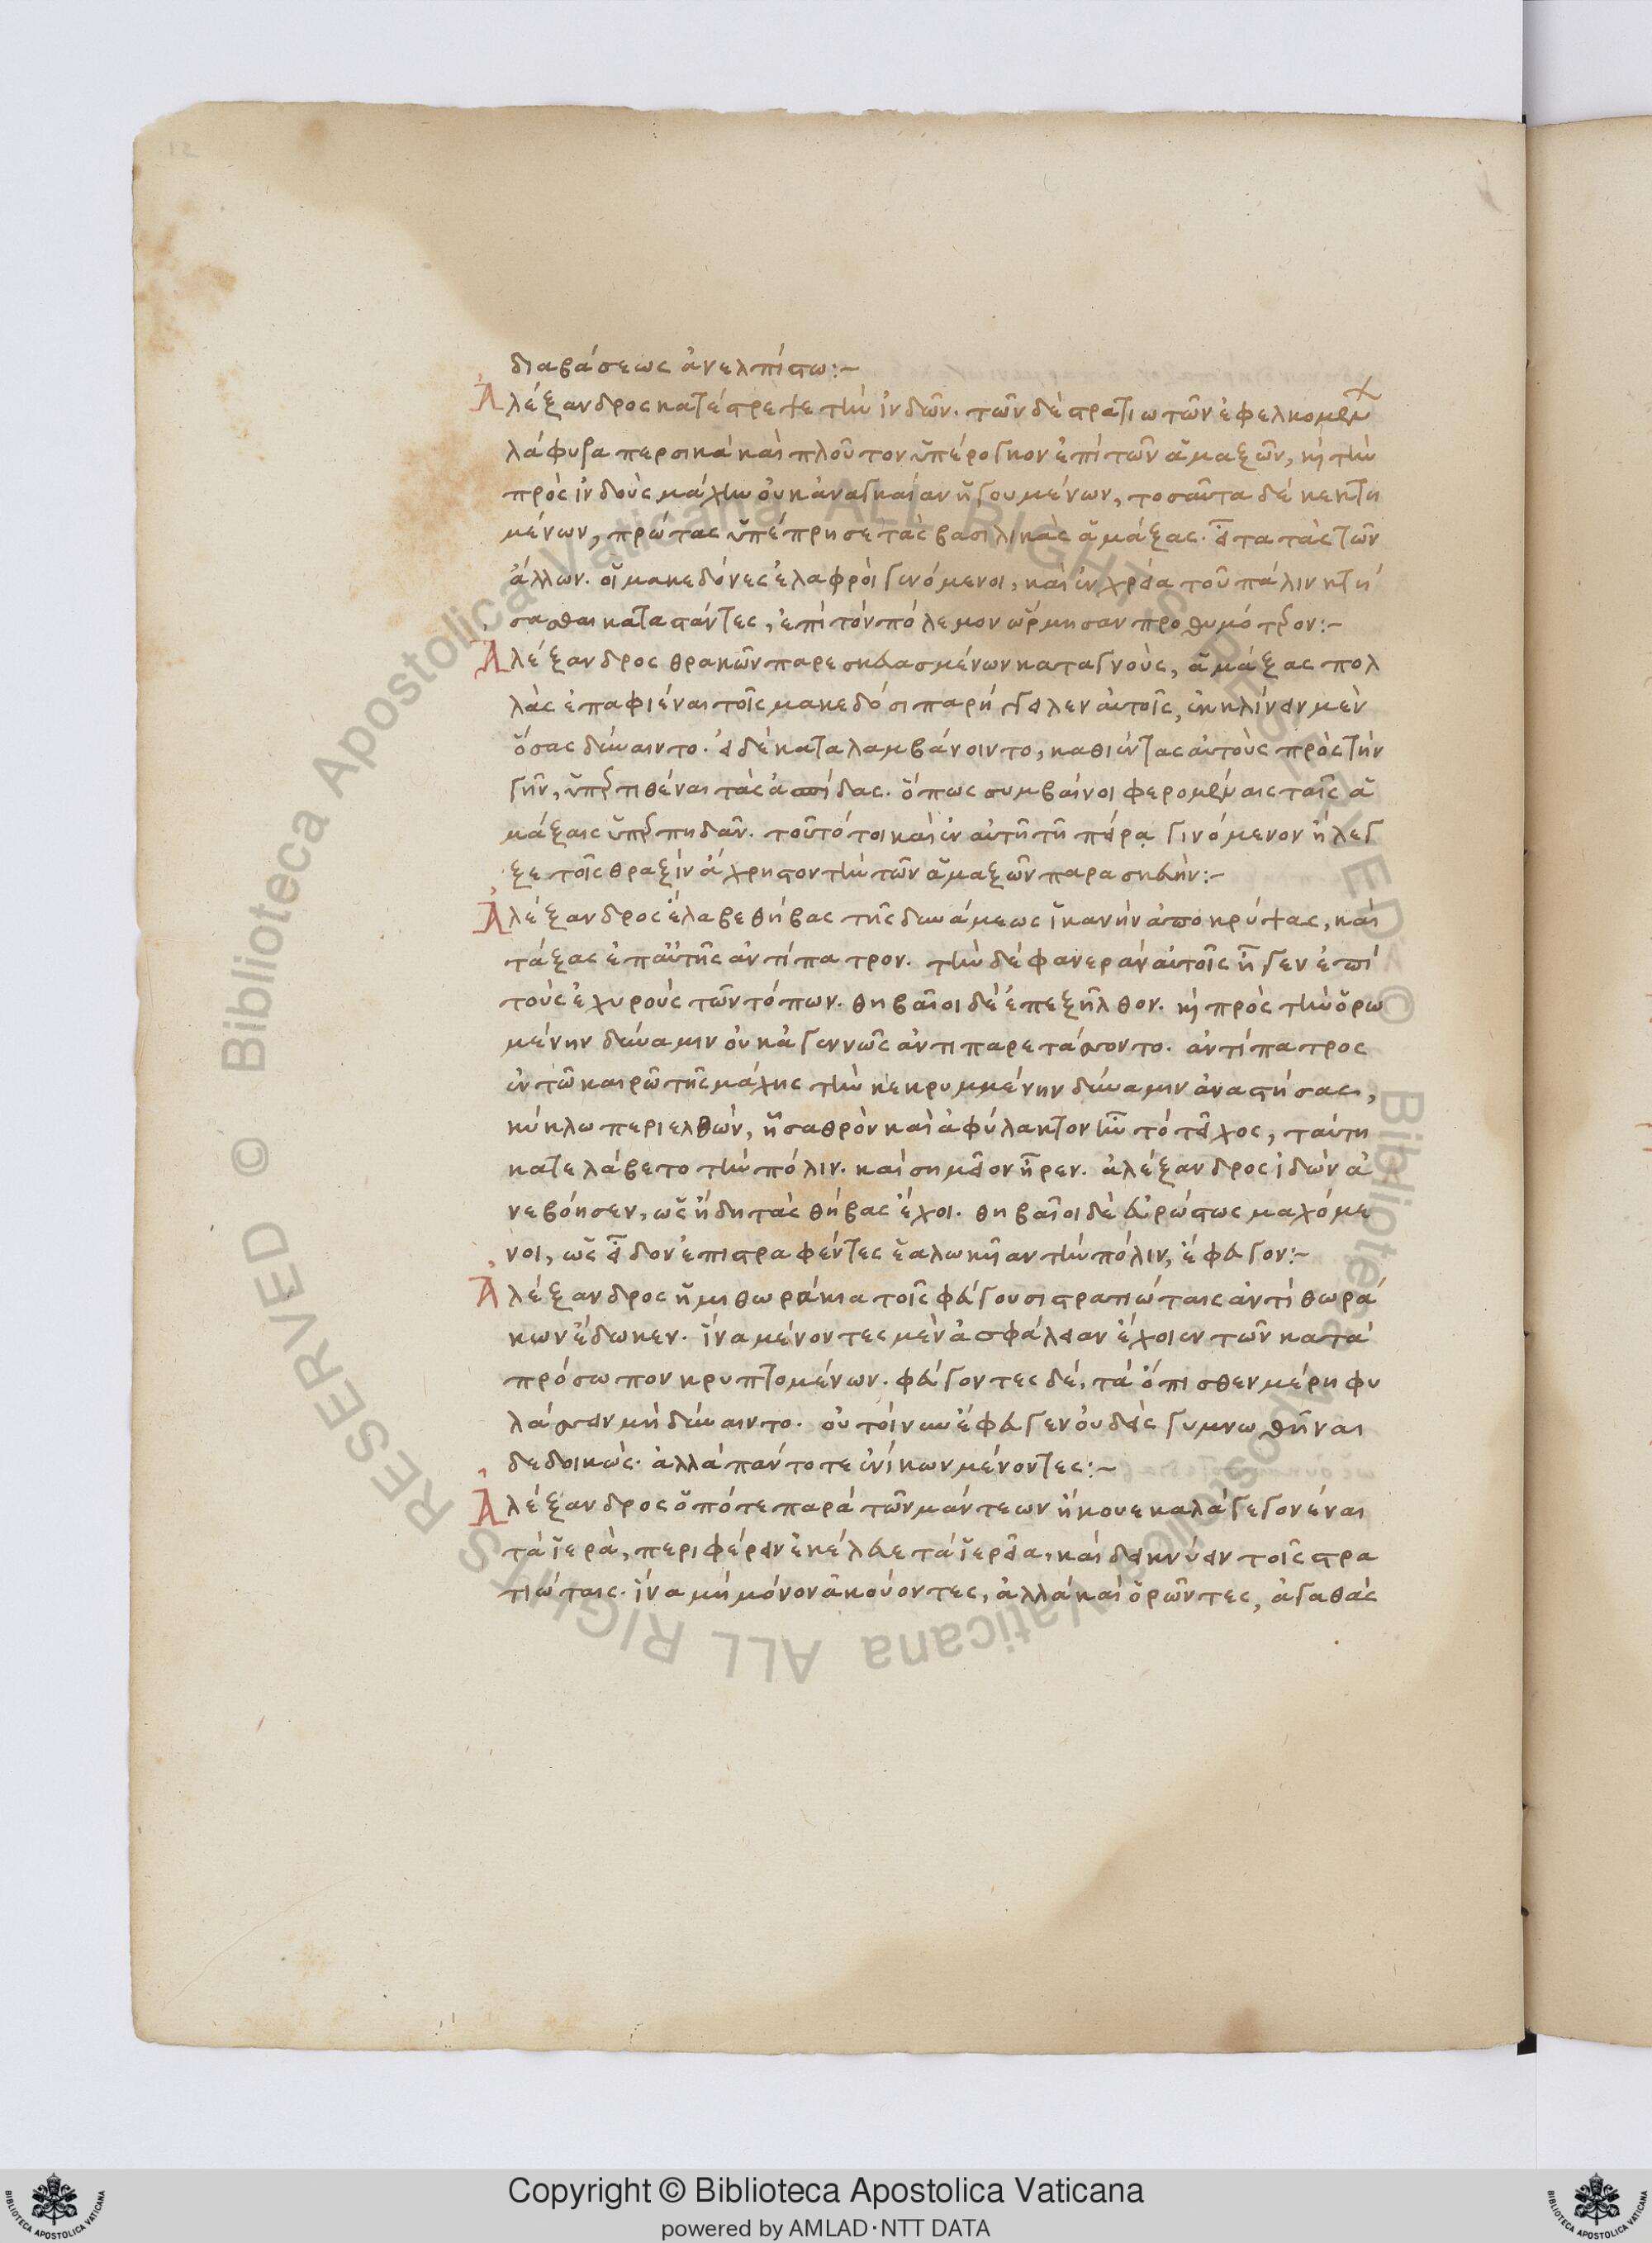 12
διαβάσεως ἀνελπίστω:~
Ἀλέξανδρος κατέστρεψε τὴν ἰνδῶν. τῶν δὲ στρατιωτῶν ἐφελκομένων
λάφυρα περσικὰ καὶ πλοῦτον ὑπέρογκον ἐπὶ τῶν ἁμαξῶν, καὶ τὴν
πρὸς ἰνδοὺς μάχην οὐκ ἀναγκαίαν ἡγουμένων, τοσαῦτα δὲ κεκτη
μένων, πρώτας ὑπέπρησε τὰς βασιλικὰς ἁμάξας. εἶτα τὰς τῶν
ἄλλων. οἱ μακεδόνες ἐλαφροὶ γενόμενοι, καὶ ἐν χρεία τοῦ πάλιν κτή
σασθαι καταστάντες, ἐπὶ τὸν πόλεμον ὥρμησαν προθυμότερον:~
Ἀλέξανδρος θρακῶν παρεσκευασμένων καταγνοὺς, ἁμάξας πολ
λὰς ἐπαφιέναι τοῖς μακεδόσι παρήγγειλεν αὐτοῖς, ἐκκλίνειν μὲν
ὅσας δύναιντο. εἰ δὲ καταλαμβάνοιντο, καθιέντας αὐτοὺς πρὸς τὴν
γῆν, ὑπερτιθέναι τὰς ἀσπίδας. ὅπως συμβαίνοι φερομέναις ταῖς ἁ
μάξαις ὑπερπηδᾶν. τοῦτό τοι καὶ ἐν αὐτῆ τῆ πείρᾳ γινόμενον ἤλεγ
ξε τοῖς θραξὶν ἄχρηστον τὴν τῶν ἁμαξῶν παρασκευήν:~
Ἀλέξανδρος ἔλαβε θήβας τῆς δυνάμεως ἱκανὴν ἀποκρύψας, καὶ
τάξας ἐπ αὐτῆς ἀντίπατρον. τὴν δὲ φανερὰν αὐτοῖς ἦγεν ἐπὶ
τοὺς ἐχυροὺς τῶν τόπων. θηβαῖοι δὲ ἐπεξῆλθον. καὶ πρὸς τὴν ὁρω
μένην δύναμιν οὐκ ἀγεννῶς ἀντιπαρετάττοντο. ἀντίπατρος
ἐν τῶ καιρῶ τῆς μάχης τὴν κεκρυμμένην δύναμιν ἀναστήσας,
κύκλω περιελθὼν, ἧ σαθρὸν καὶ ἀφύλακτον ἦν τὸ τεῖχος, ταύτη
κατελάβετο τὴν πόλιν. καὶ σημεῖον ἦρεν. ἀλέξανδρος ἰδὼν ἀ
νεβόησεν, ὡς ἤδη τὰς θήβας ἔχοι. θηβαῖοι δὲ εὐρώστως μαχόμε
νοι, ὡς εἶδον ἐπιστραφέντες ἑαλωκῆαν τὴν πόλιν, ἔφευγον:~
Ἀλέξανδρος ἡμιθωράκια τοῖς φεύγουσι στρατιώταις ἀντὶ θωρά
κων ἔδωκεν. ἵνα μένοντες μὲν ἀσφάλειαν ἔχοιεν τῶν κατὰ
πρόσωπον κρυπτομένων. φεύγοντες δὲ, τὰ ὄπισθεν μέρη φυ
λάττειν μὴ δύναιντο. οὐ τοίνυν ἔφευγεν οὐδεὶς γυμνωθῆναι
δεδοικὼς. ἀλλὰ πάντοτε ἐνίκων μένοντες:~
Ἀλέξανδρος ὁπότε παρὰ τῶν μάντεων ἤκουε καλὰ γεγονέναι
τὰ ἱερὰ, περιφέρειν ἐκέλευε τὰ ἱερεῖα, καὶ δεικνύειν τοῖς στρα
τιώταις. ἵνα μὴ μόνον ἀκούοντες, ἀλλὰ καὶ ὁρῶντες, ἀγαθὰς
© Biblioteca Apostolica Vaticana ALL RIGHTS RESERVED © Biblioteca Apostolica Vaticana ALL RIGHTS RESERVED
Copyright © Biblioteca Apostolica Vaticana
powered by AMLAD·NTT DATA
BIBLIOTECA APOSTOLICA VATICANA
BIBLIOTECA APOSTOLICA VATICANA